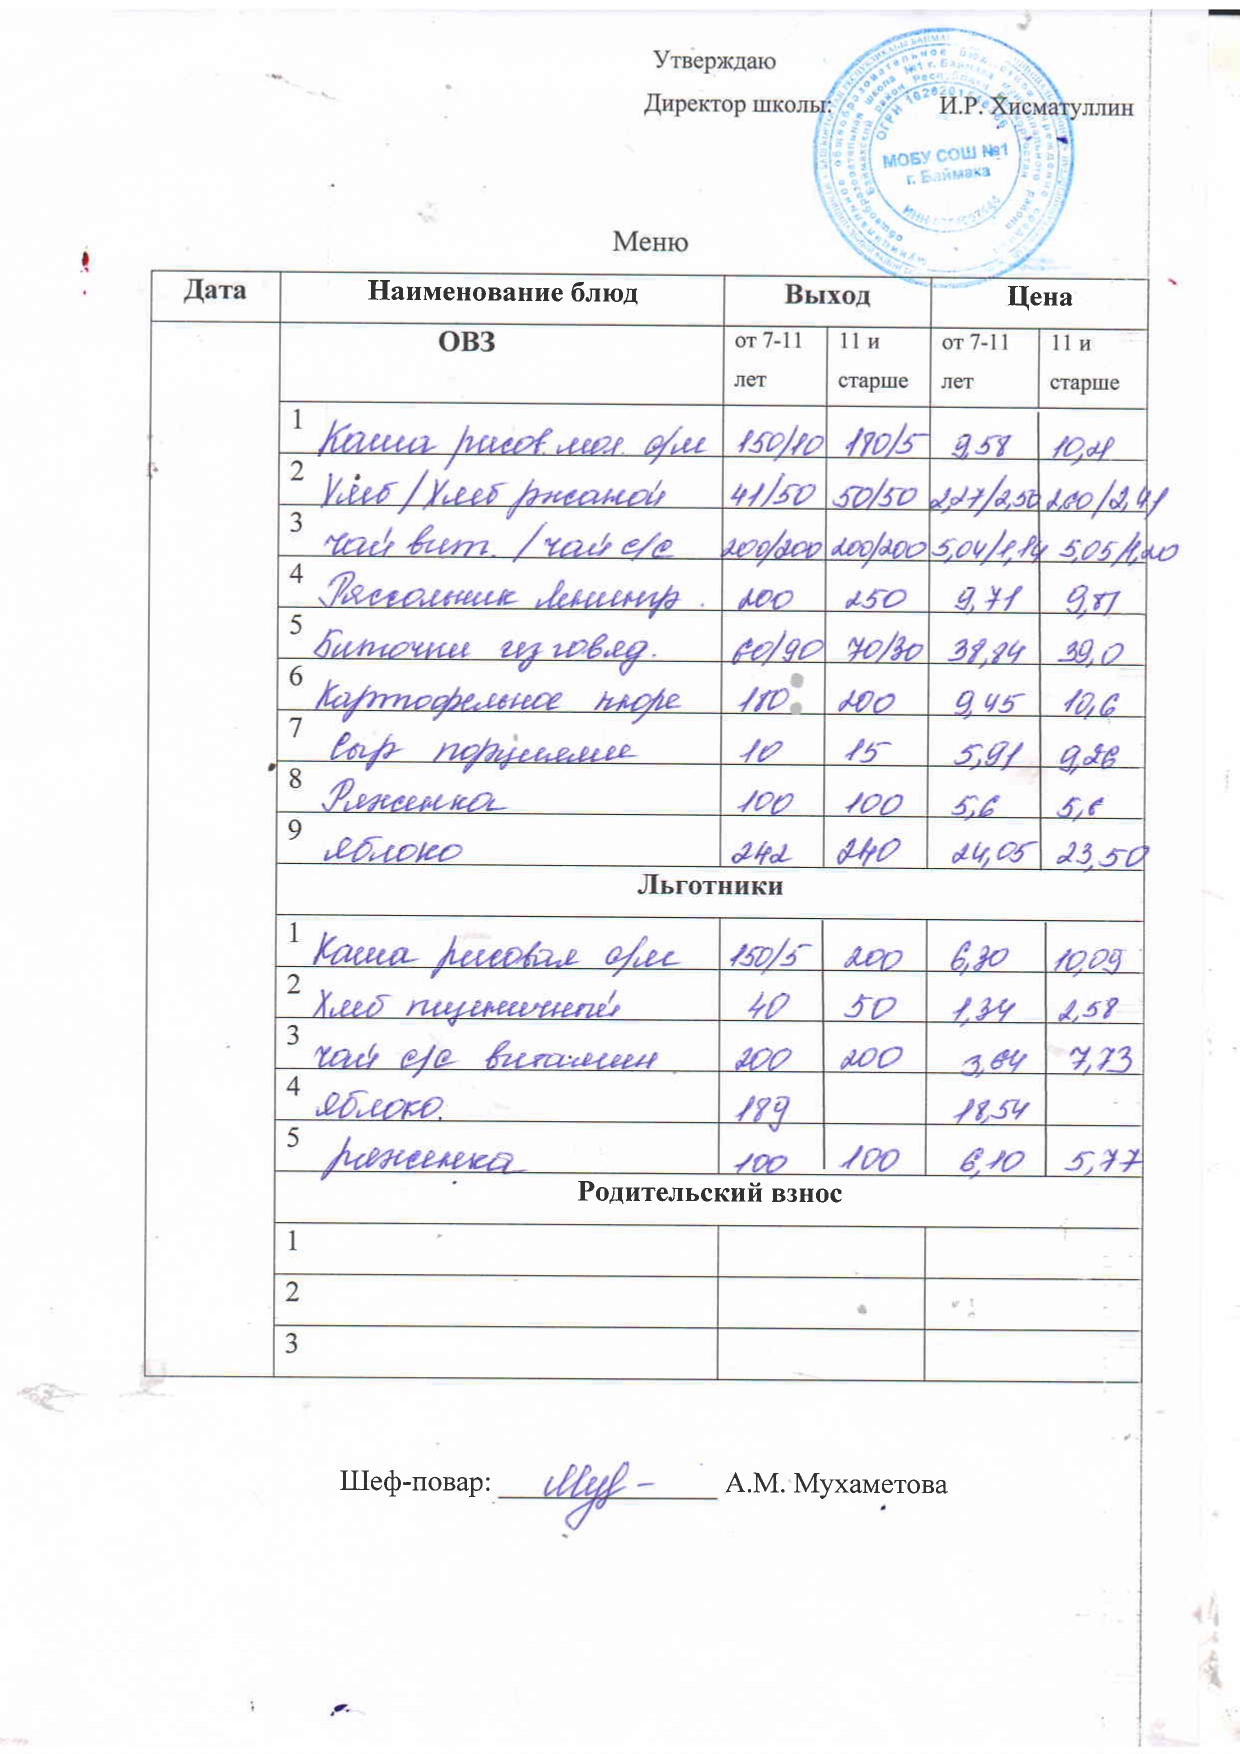 Утверждаю
Директор школы: И.Р. Хисматуллин
МОБУ СОШ №1
г. Баймака
Меню
Дата Наименование блюд Выход Цена
ОВЗ от 7-11 лет 11 и старше от 7-11 лет 11 и старше
1 Каша рисов. мол. с/м 150/10 180/5 9,58 10,21
2 Хлеб / Хлеб ржаной 41/50 50/50 2,27/2,50 2,60/2,41
3 чай вит. / чай с/с 200/200 200/200 5,04/1,14 5,05/1,20
4 Рассольник Ленингр. 200 250 9,71 9,81
5 Биточки из говяд. 60/90 70/30 38,84 39,0
6 Картофельное пюре 180 200 9,45 10,6
7 Сыр порциями 10 15 5,91 9,26
8 Ряженка 100 100 5,6 5,6
9 яблоко 242 240 24,05 23,50
Льготники
1 Каша рисовая с/м 150/5 200 6,30 10,09
2 Хлеб пшеничный 40 50 1,34 2,58
3 чай с/с витамин 200 200 3,64 7,73
4 яблоко. 189 18,54
5 ряженка 100 100 6,10 5,77
Родительский взнос
1
2
3
Шеф-повар: А.М. Мухаметова